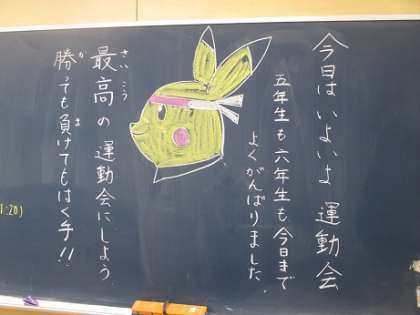 今日はいよいよ運動会
五年生も六年生も、今日まで
よくがんばりました。
最高の運動会にしよう
さいこう
勝っても負けてもはく手!!
か
ま
1:20)